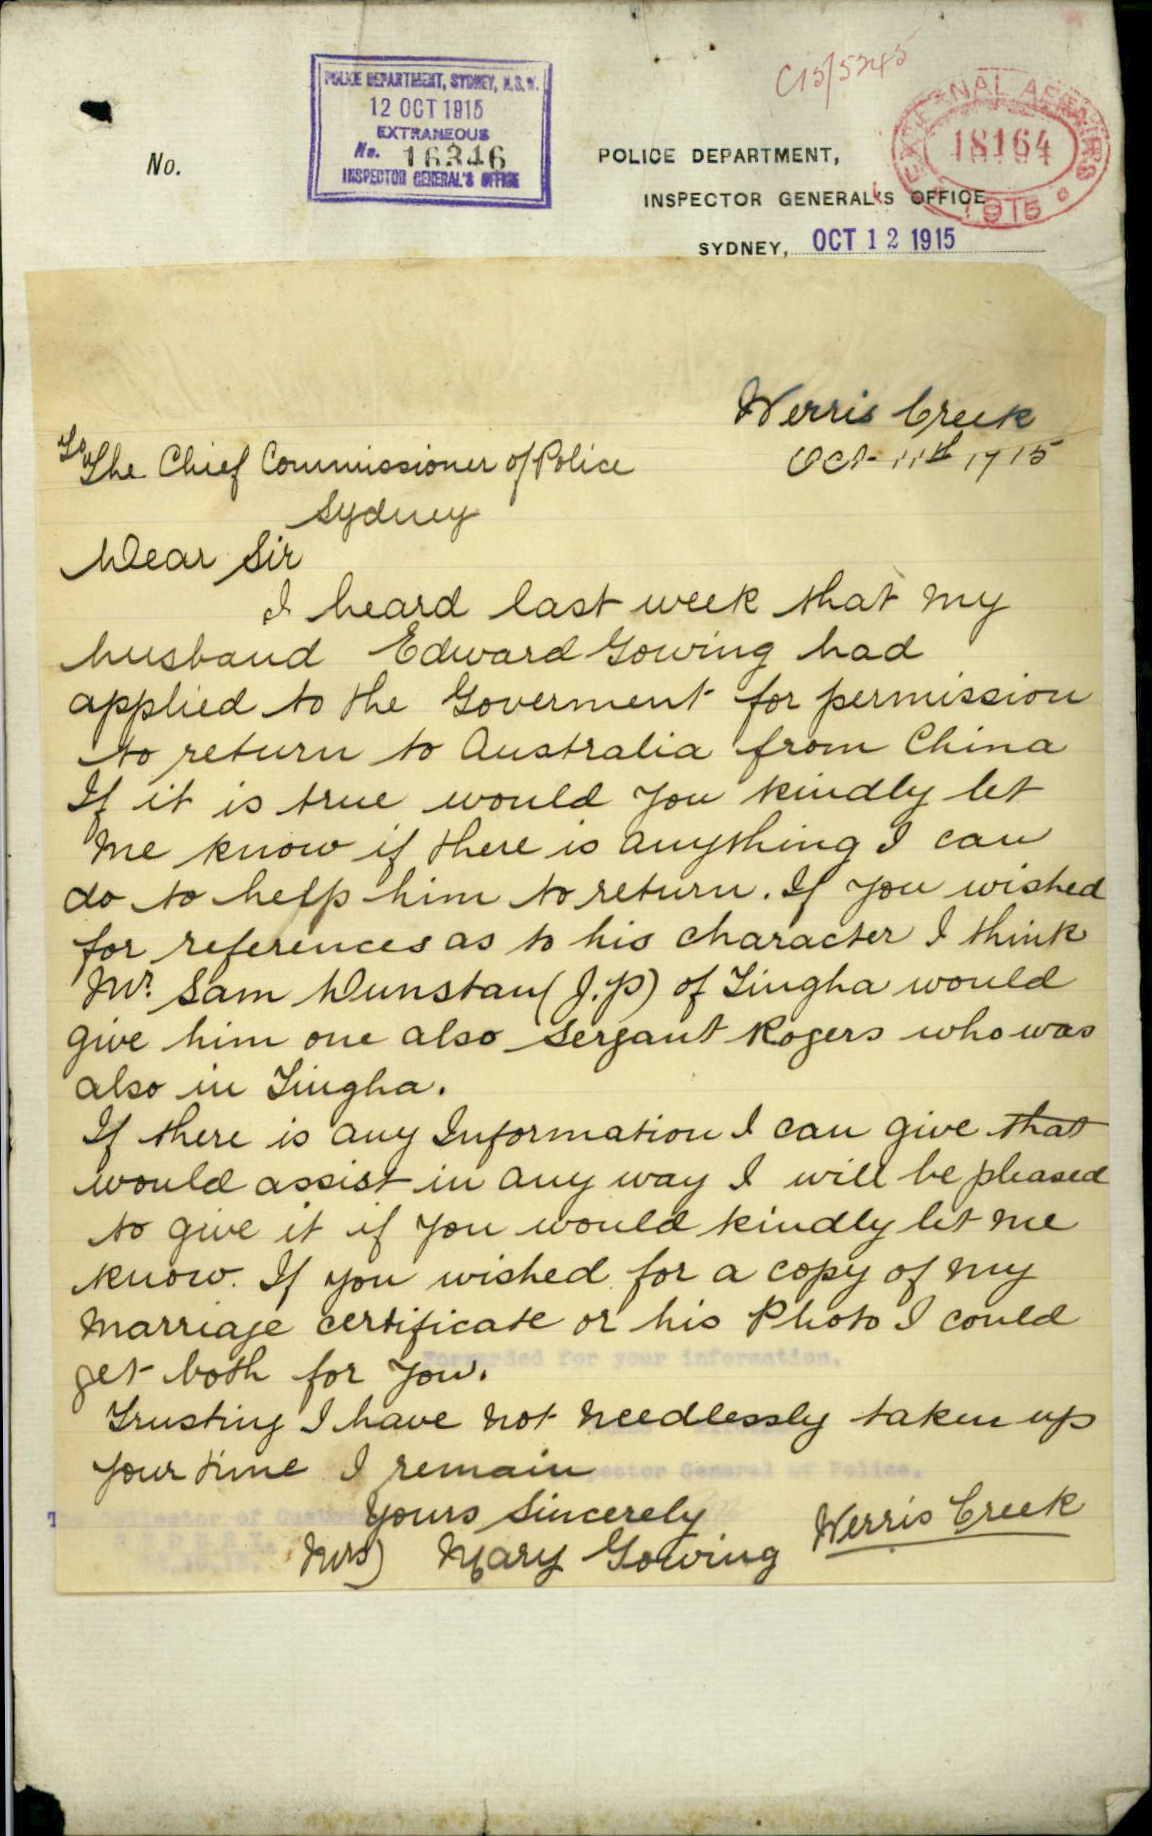 C15/5245
POLICE DEPARTMENT, SYDNEY, N.S.W.
12 OCT 1915
EXTRANEOUS
No. 16346
INSPECTOR GENERAL'S OFFICE
EXTERNAL AFFAIRS
18164
1915
No.
POLICE DEPARTMENT,
INSPECTOR GENERAL'S OFFICE
SYDNEY, OCT 12 1915
Werris Creek
Oct 11th 1915
To
The Chief Commissioner of Police
Sydney
Dear Sir
I heard last week that my
husband Edward Gowing had
applied to the Goverment for permission
to return to Australia from China
If it is true would you kindly let
me know if there is anything I can
do to help him to return. If you wished
for references as to his character I think
Mr. Sam Dunstan (J.P) of Tingha would
give him one also Sergant Rogers who was
also in Tingha.
If there is any Information I can give that
would assist in any way I will be pleased
to give it if you would kindly let me
know. If you wished for a copy of my
Marriage certificate or his Photo I could
get both for you.
Forwarded for your information.
Trusting I have not needlessly taken up
your time I remain
Inspector General of Police.
Yours Sincerely
Mrs) Mary Gowing Werris Creek